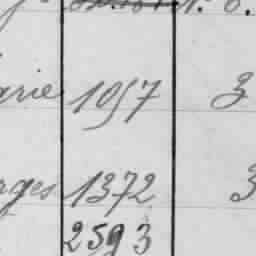 arie 1057 3
rges 1372 3
2593